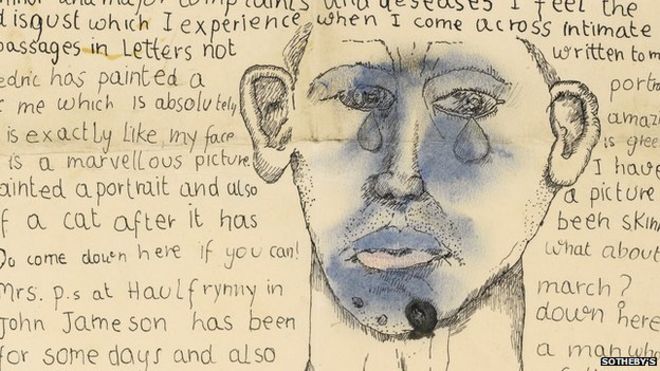 and major complaints and deseases I feel the
disgust which I experience when I come across intimate
passages in Letters not written to m
edric has painted a portra
me which is absolutely amazi
is exactly like my face is gree
is a marvellous picture I have
ainted a portrait and also a picture
f a cat after it has been skin
Do come down here if you can! what about
Mrs. p.s at Haulfrynny in march?
John Jameson has been down here
for some days and also a man who
SOTHEBY'S